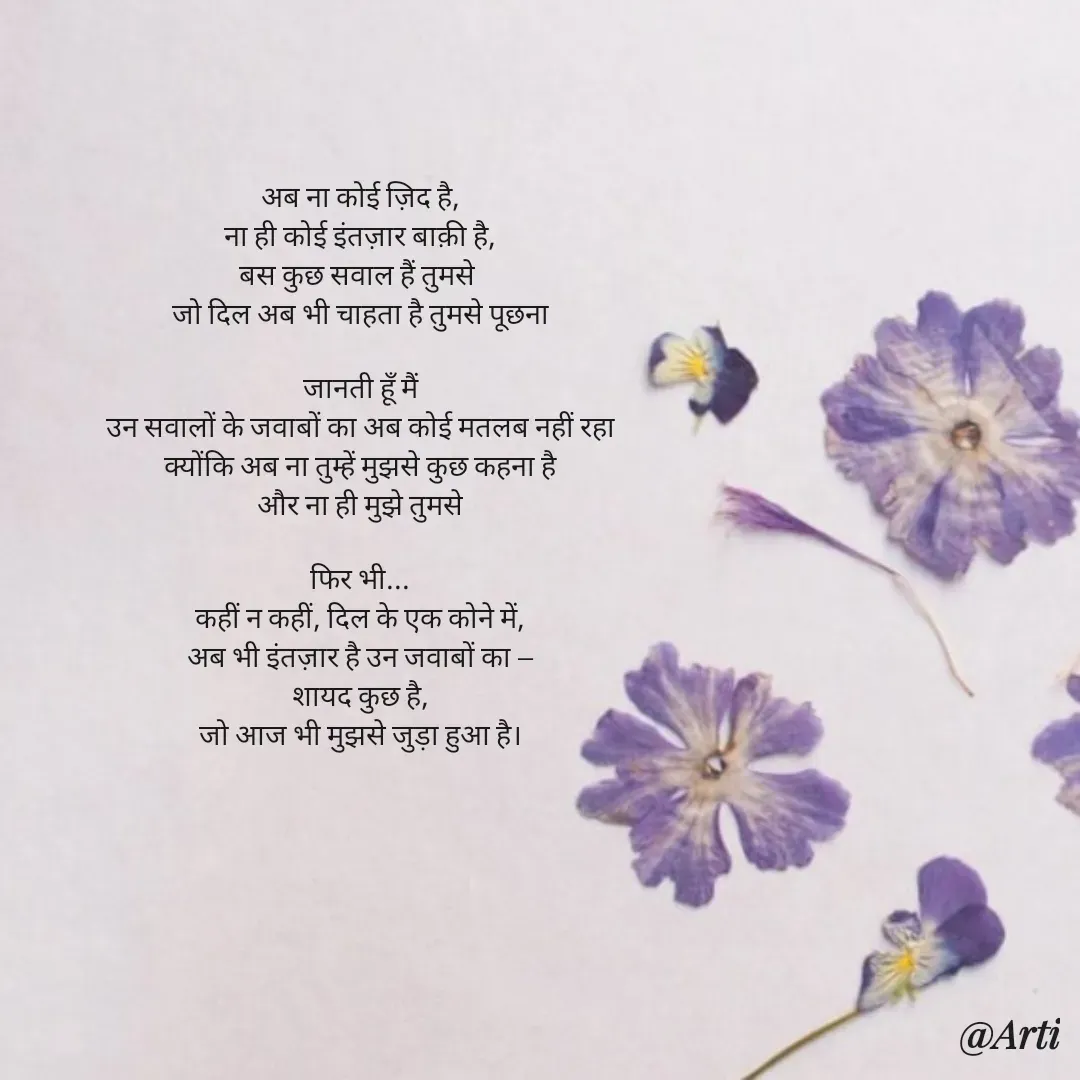 अब ना कोई ज़िद है,
ना ही कोई इंतज़ार बाक़ी है,
बस कुछ सवाल हैं तुमसे
जो दिल अब भी चाहता है तुमसे पूछना
जानती हूँ मैं
उन सवालों के जवाबों का अब कोई मतलब नहीं रहा
क्योंकि अब ना तुम्हें मुझसे कुछ कहना है
और ना ही मुझे तुमसे
फिर भी...
कहीं न कहीं, दिल के एक कोने में,
अब भी इंतज़ार है उन जवाबों का –
शायद कुछ है,
जो आज भी मुझसे जुड़ा हुआ है।
@Arti